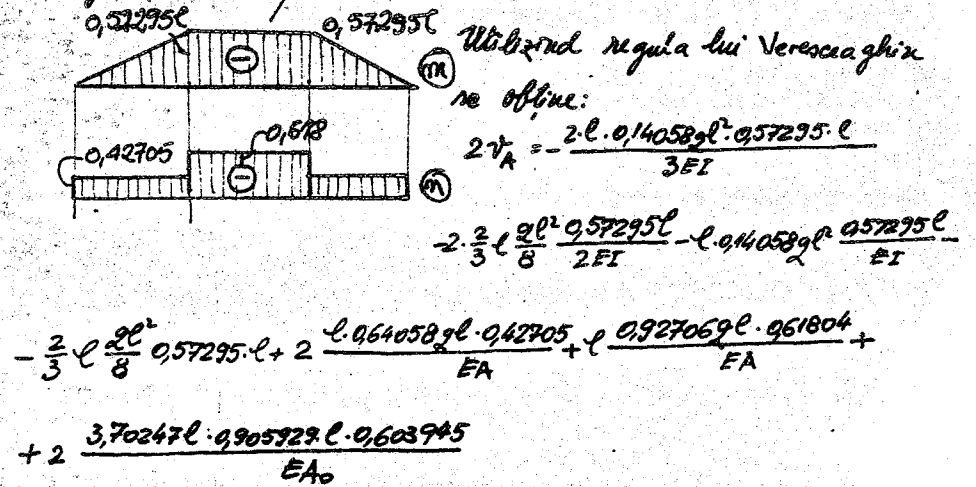 0,57295l
0,57295l
m
Utilizind regula lui Veresceaghin
se obține:
0,42705
0,618
n
2v_A = - \frac{2·l·0,14058ql²·0,57295·l}{3EI}
-2·\frac{2}{3} l \frac{ql²}{8} \frac{0,57295l}{2EI} - l·0,14058ql² \frac{0,57295l}{EI} -
- \frac{2}{3} l \frac{ql²}{8} 0,57295·l + 2 \frac{l·0,64058ql·0,42705}{EA} + l \frac{0,927069ql·0,61804}{EA} +
+ 2 \frac{3,70247l·0,905929·l·0,603945}{EA₀}